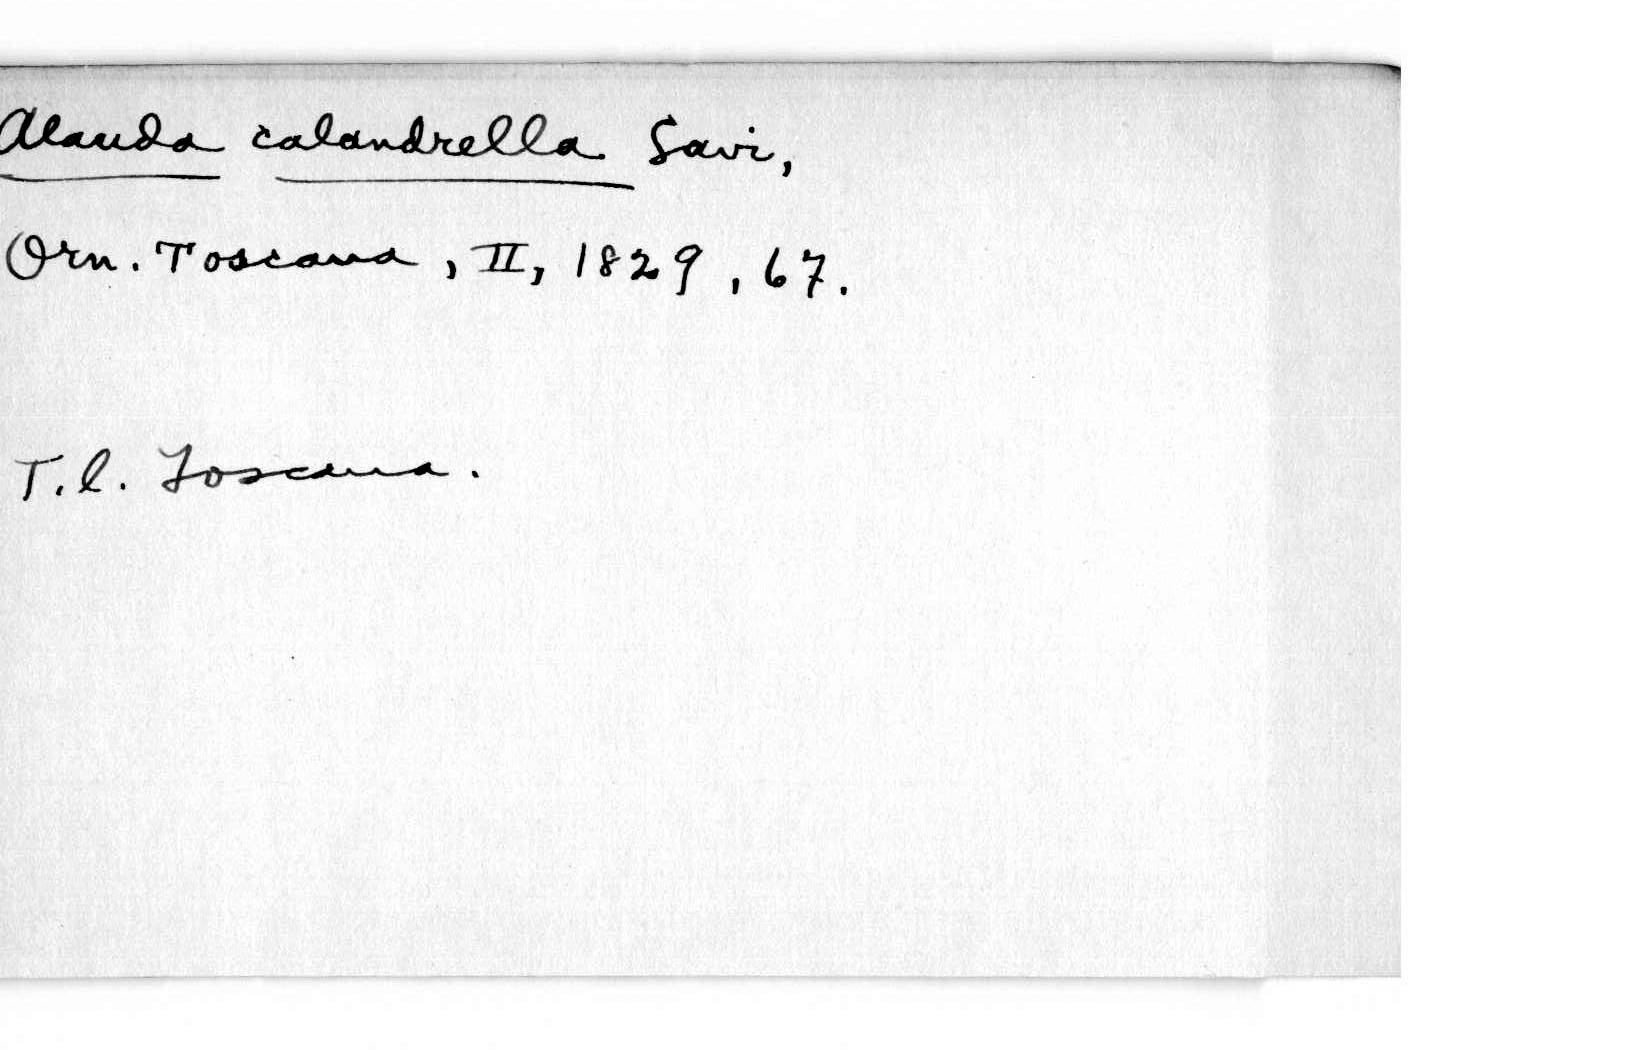 Alauda calandrella Savi,
Orn. Toscana, II, 1829, 67.
T.l. Toscana.